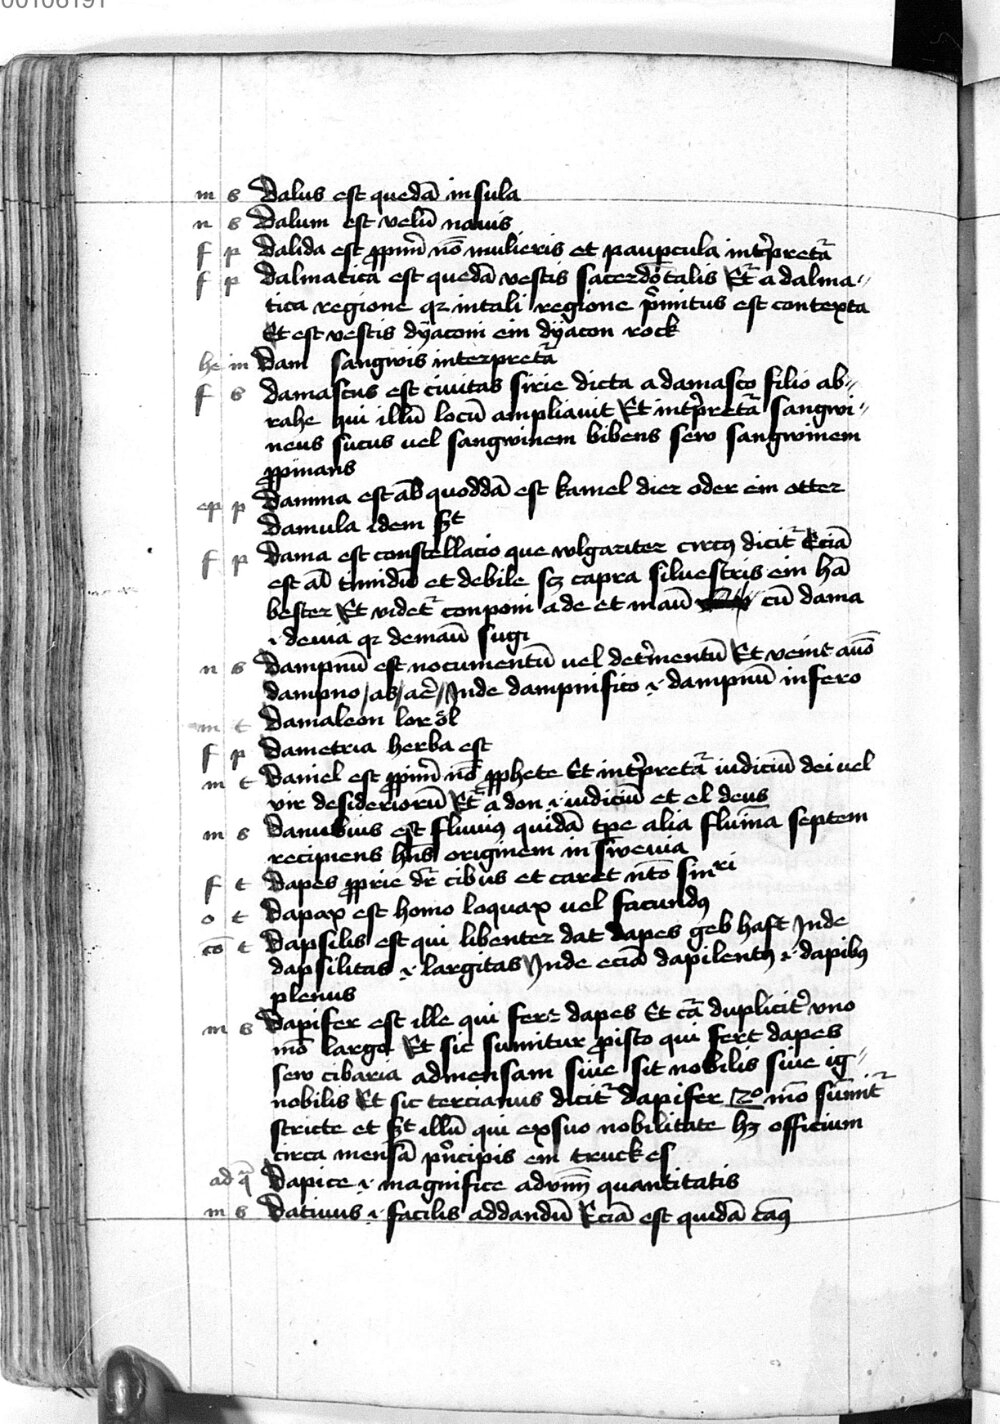 00106191
m s Dalus est quedā insula
n s Dalum est velū nauis
f p Dalida est ꝓpiū nō mulieris et paupcula intp̄retā
f p Dalmatica est quedā vestis sacerdotalis Et̄ a dalma⸗
tica regione qꝛ in tali regione p̄mitus est contexta
Et est vestis dÿaconi ein dÿacon rock
he in Dam sangwis interpretā
f s Damascus est ciuitas sirie dicta a damasco filio ab⸗
rahe qui illū locū ampliauit Et intp̄retā sangwi⸗
neus sucus uel sangwinem bibens sew sangwinem
ꝓpinans
ep p Damma est aīb quoddā est kamel dier oder ein otter
Damula idem st̄
f p Dama est constellacio que wlgariter dicit̄ Eciā
est aīl timidū et debile scꝫ capra siluestris ein hā
bester Et videt̄ conponi a de et maū cū dama
.i. deuia qꝛ de maū fugi
n s Dampnū est nocumentū uel det̄mentū Et venit
dampno / as / aē / Inde dampnifico .i. dampnū infero
m t Damaleon
f p Dametria herba est
m t Daniel est ꝓpiū nō ꝓphete Et intp̄retā iudiciū dei uel
vir desideriorū Et̄ a don .i. iudiciū et el deus
m s Danubius est fluuiꝰ quidā tꝑe alia flumīa septem
recipiens hn̄s originem in swenia
f t Dapes ꝓprie dr̄ cibus et caret
o t Dapax est homo loquax uel facundꝰ
cō t Dapsilis est qui libenter dat dapes geb haft Inde
dapsilitas .i. largitas Inde eciā dapilentꝰ .i. dapibꝰ
plenus
m s Dapifer est ille qui fert dapes Et cā duplicit̄ vno
mō large Et sic sumitur ꝓ isto qui fert dapes
sew cibaria ad mensam siue sit nobilis siue ig⸗
nobilis Et sic tercianus dicit̄ dapifer 2º mō sumit̄
stricte et st̄ illū qui ex suo nobilitate hꝫ officium
circa mensā pn̄cipis ein truckes
ad q̄ Dapice .i. magnifice aduīm quantitatis
m s Datiuus .i. facilis ad dandū Eciā est quidā cāꝰ